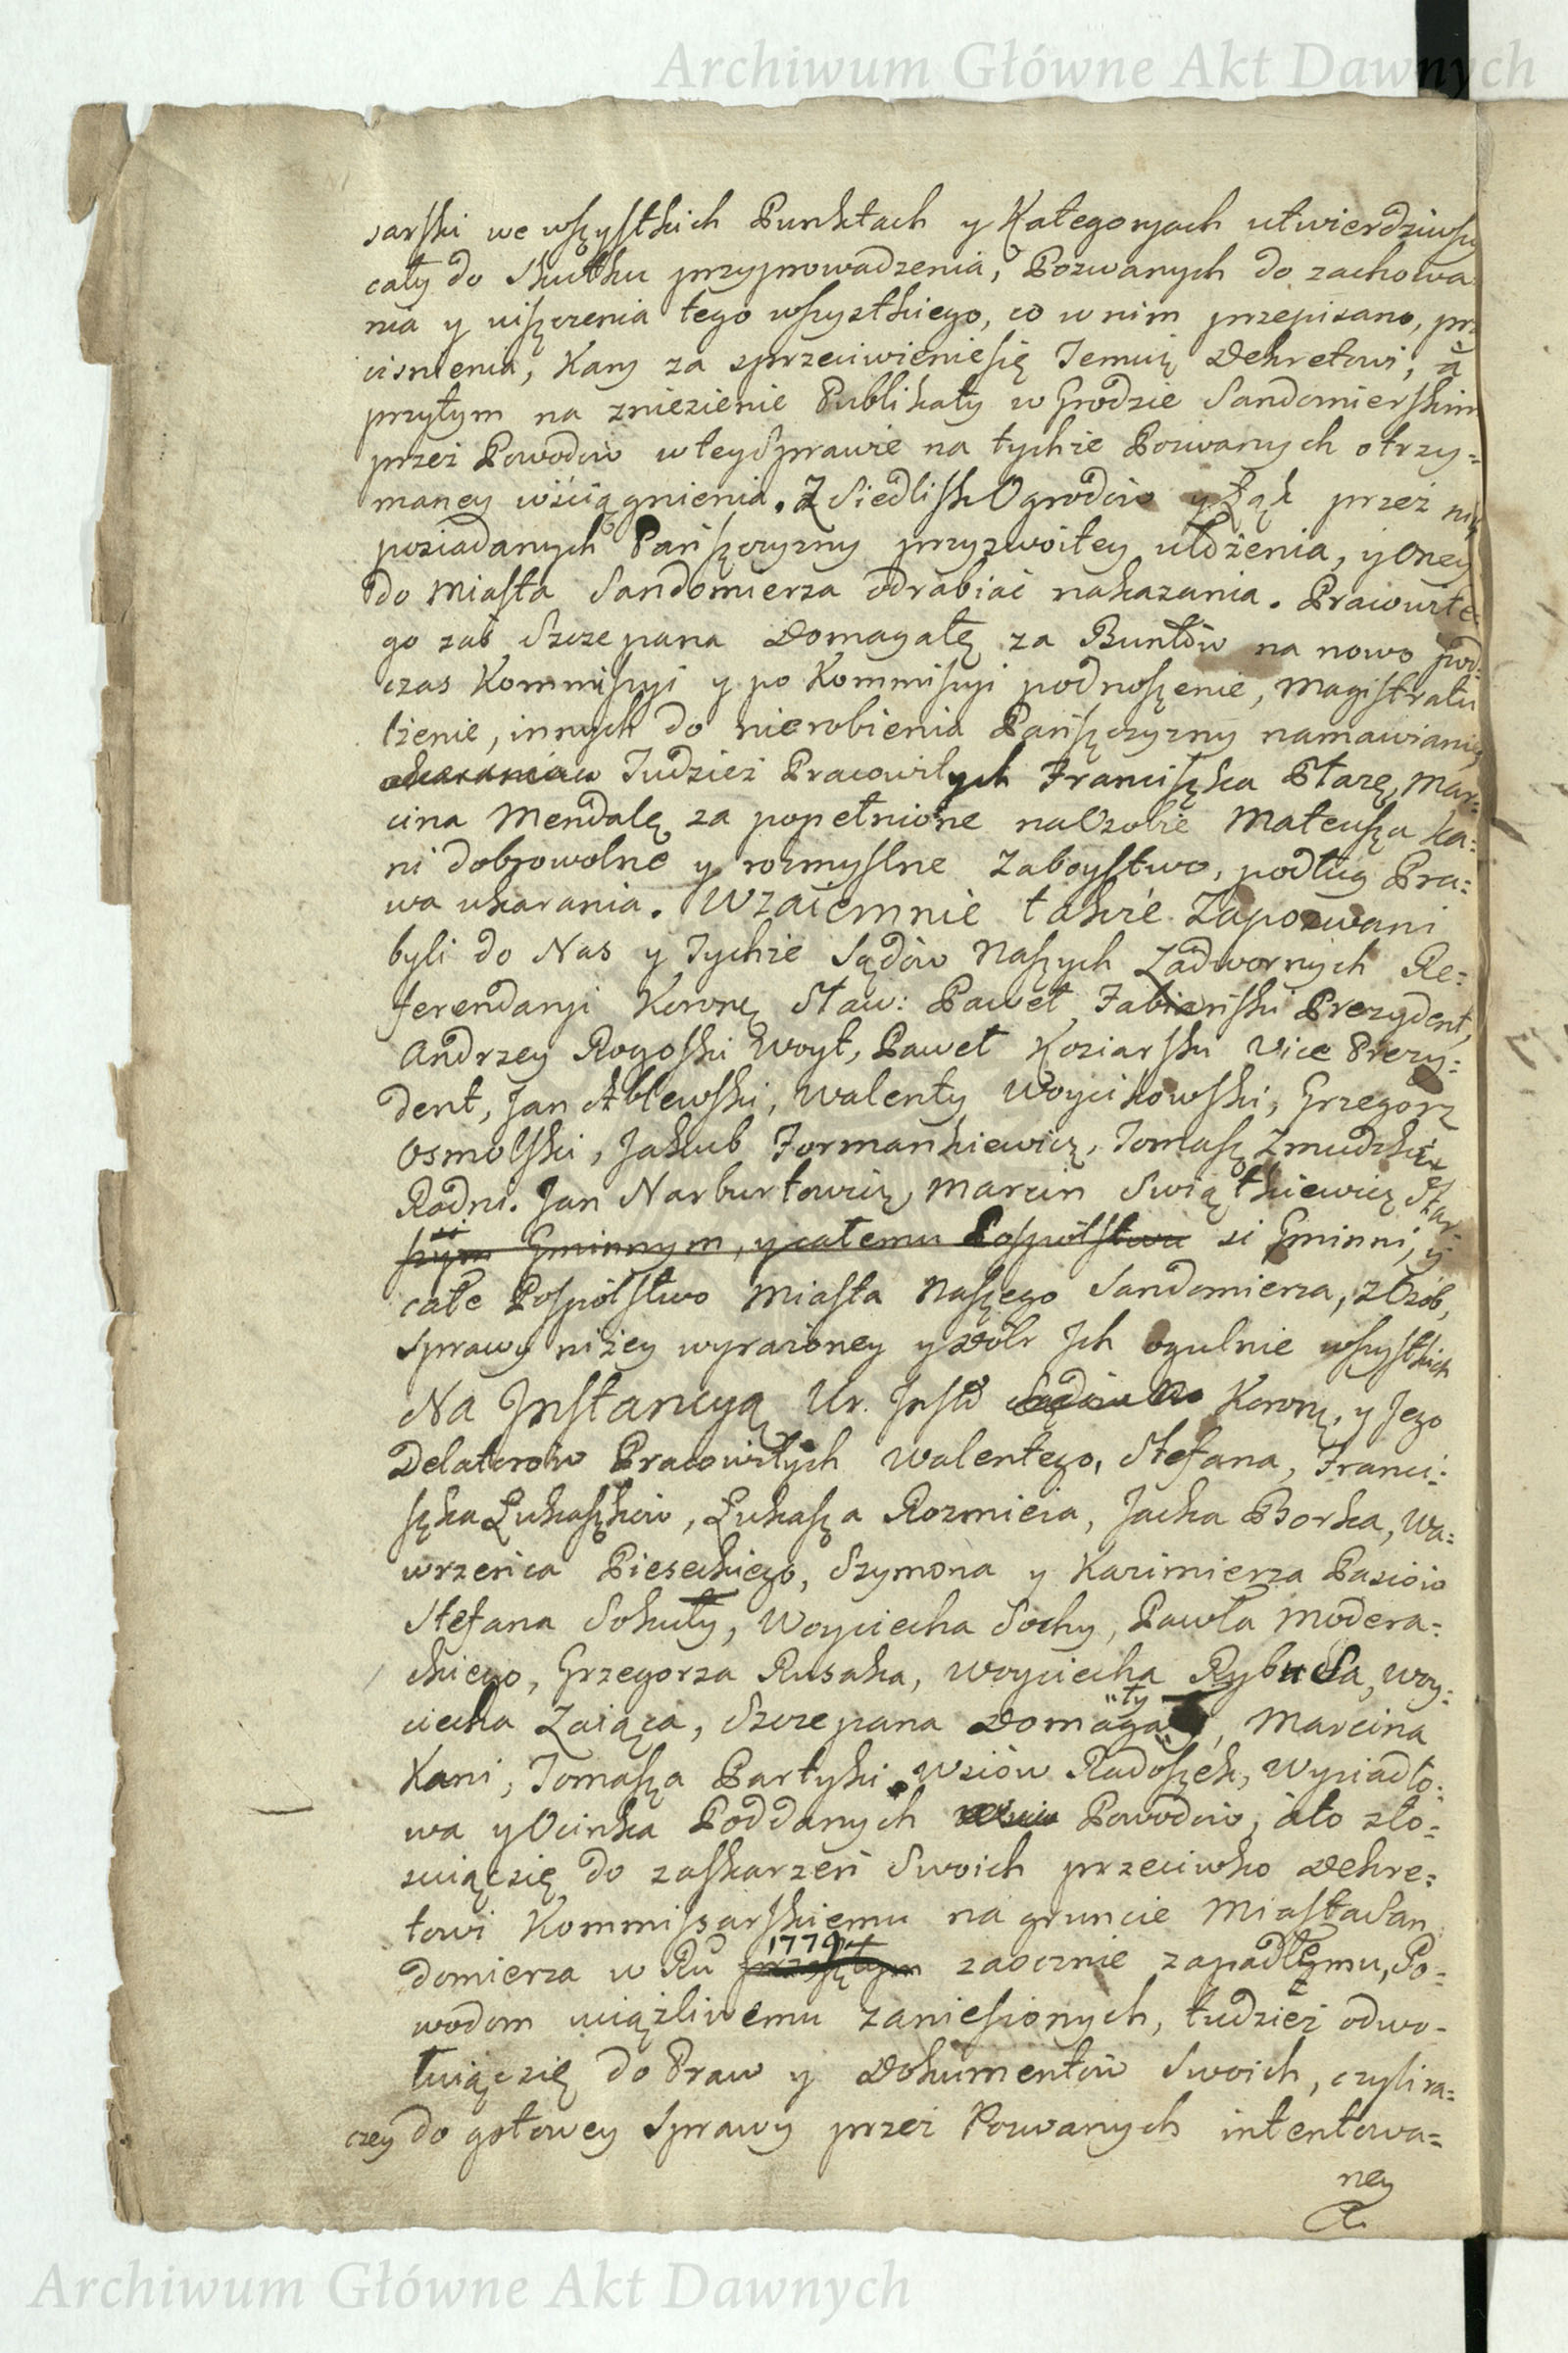 Archiwum Główne Akt Dawnych
sarski we wszystkich Punktach y Kategoryach utwierdziwszy
cały do skutku przyprowadzenia, Pozwanych do zachowa
nia y uiszczenia tego wszystkiego, co w nim przepisano, prz
ciśnienia, Kary za sprzeciwieniesię Temuż Dekretowi, a
przytym na zniezienie Publikaty w Grodzie Sandomierskim
przez Powodow w tey Sprawie na tychże Pozwanych otrzy=
maney wściągnienia. Z Siedlisk Ogrodow y Łąk przez nich
posiadanych Pańszczyzny przyzwoitey ułożenia, y Oney
do Miasta Sandomierza odrabiać nakazania. Pracowite
go zaś Szczepana Domagałę za Buntów na nowo pod=
czas Kommissyi y po Kommissyi podnoszenie, Magistratu
lżenie, innych do nierobienia Pańszczyzny namawianie,
Tudzież Pracowitych Franciszka Ptazę, Mar=
cina Mendalę za popełnione na Osobie Mateusza Ka=
ni dobrowolne y rozmyslne Zaboystwo, podług Pra=
wa ukarania. Wzaiemnie także Zapozwani
byli do Nas y Tychże Sądów Naszych Zadwornych Re=
ferendaryi Koronę Sław: Paweł Fabiański Prezydent,
Andrzey Rogoski Woyt, Paweł Koziarski Vice Prezy=
dent, Jan Ablewski, Walenty Woycikowski, Grzegorz
Osmolski, Jakub Formankiewicz, Tomasz Zmudzki
Radni. Jan Narburtowicz, Marcin Swiątkiewicz Star
szym Gminnym, y całemu Pospolstwu si Gminni, y
całe Pospólstwo Miasta Naszego Sandomierza, z Osób,
Sprawy niżey wyrażoney y Dóbr Ich ogulnie wszystkich
Na Instancyą Ur. Inst Koronę, y Jego
Delatorow Pracowitych Walentego, Stefana, Franci=
szka Łukaszków, Łukasza Rozmieia, Jacka Borka, Wa=
wrzeńca Pieseckiego, Szymona y Kazimierza Pasiow
Stefana Sokuły, Woyciecha Sochy, Pawła Modera=
ckiego, Grzegorza Rusaka, Woyciecha Rybusa, Woy=
ciecha Zaiąca, Szczepana Domagały, Marcina
Kani, Tomasza Partyki. Wsiów Radoszek, Wysiadło=
wa y Ocinka Poddanych Powodow, a to sto=
suiącsię do zaskarżeń Swoich przeciwko Dekre=
towi Kommissarskiemu na gruncie Miasta San
domierza w Ru 1779 zaocznie zapadłemu, Po=
wodom uciążliwemu zaniesionych, tudzież odwo=
łuiącsię do Praw y Dokumentów Swoich, czyli ra=
czey do gotowey Sprawy przez Pozwanych intentowa=
ney
Archiwum Główne Akt Dawnych